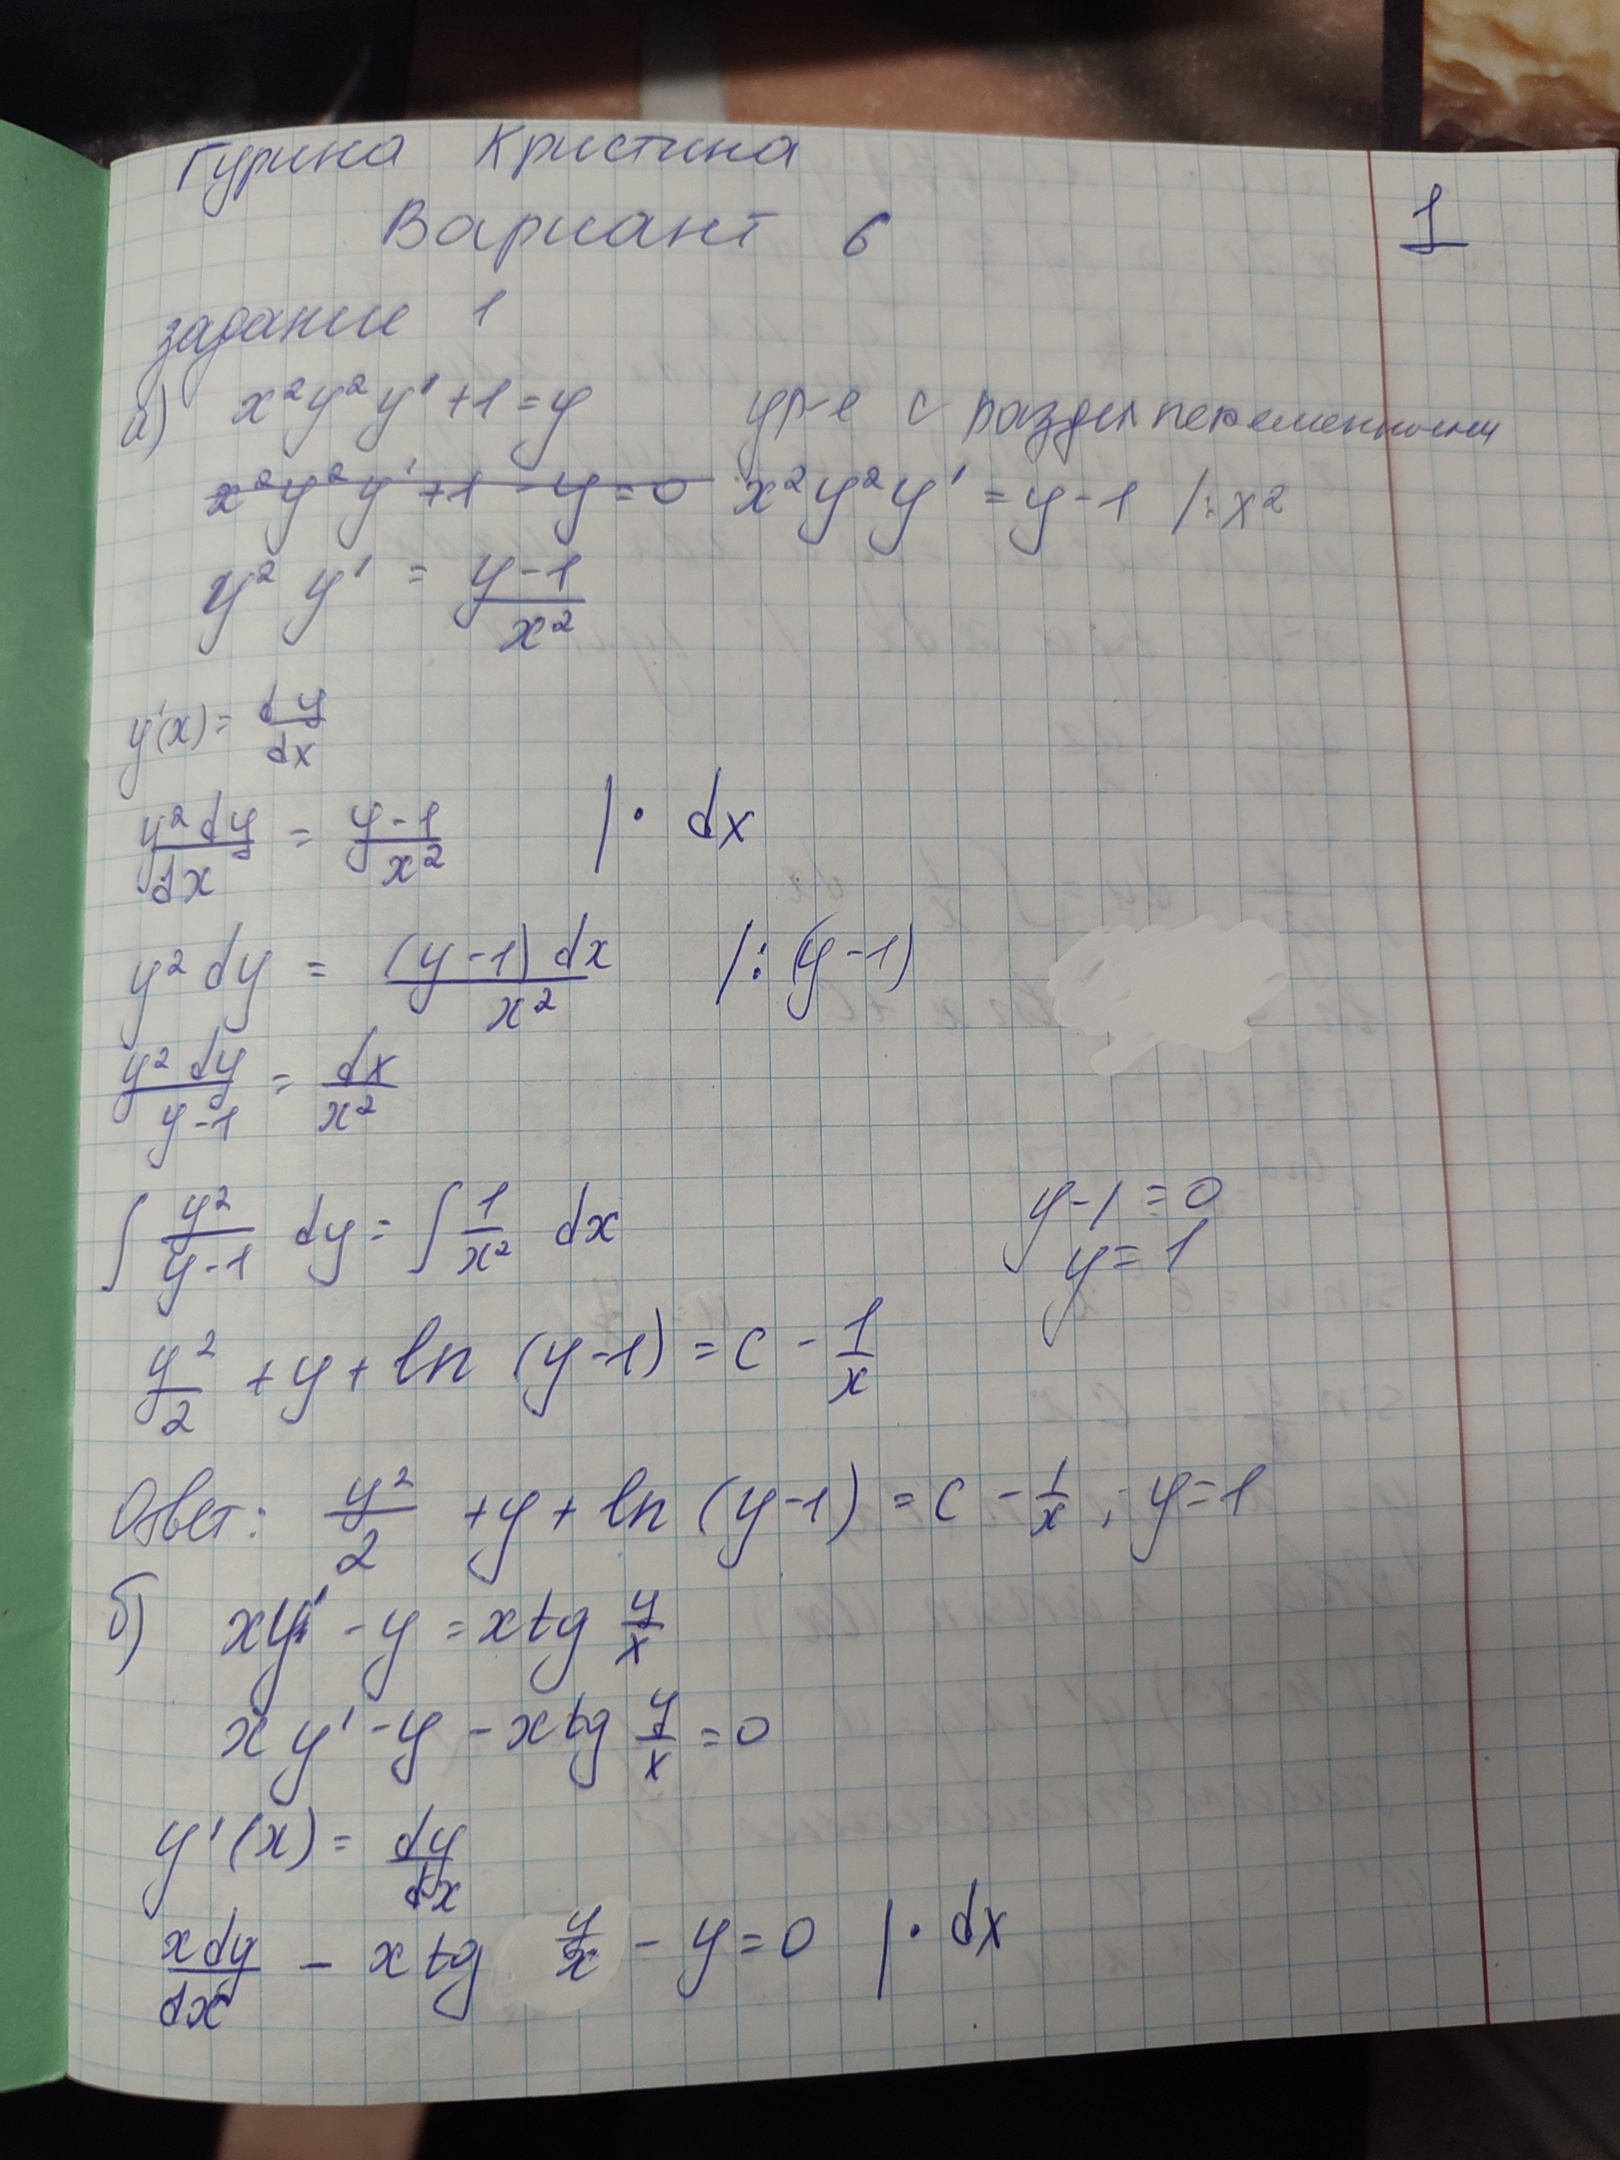 Гурина Кристина
Вариант 6
1
задание 1
а) x²y²y' + 1 = y ур-е с раздел переменными
x²y²y' + 1 - y = 0 x²y²y' = y - 1 /: x²
y² y' = (y-1)/x²
y'(x) = dy/dx
y² dy/dx = (y-1)/x² | · dx
y² dy = (y-1) dx/x² /: (y-1)
y² dy/(y-1) = dx/x²
∫ y²/(y-1) dy = ∫ 1/x² dx y-1 = 0
y = 1
y²/2 + y + ln (y-1) = C - 1/x
Ответ: y²/2 + y + ln (y-1) = C - 1/x ; y = 1
б) xy' - y = x tg y/x
x y' - y - x tg y/x = 0
y'(x) = dy/dx
x dy/dx - x tg y/x - y = 0 | · dx